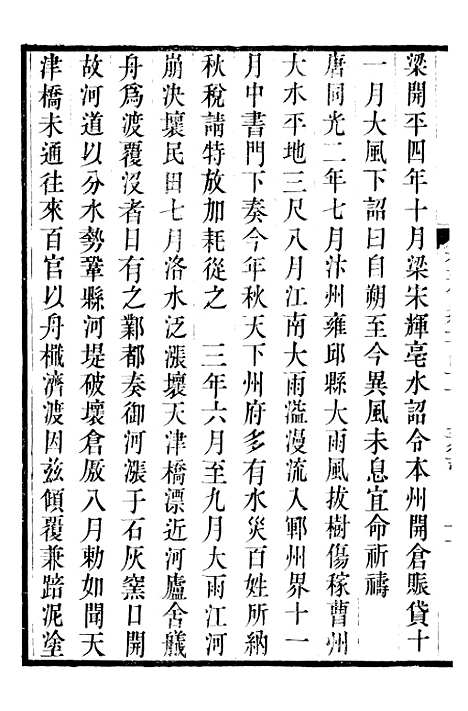 梁開平四年十月梁宋輝亳水詔令本州開倉賑貸十
一月大風下詔曰自朔至今異風未息宜命祈禱
唐同光二年七月汴州雍邱縣大雨風拔樹傷稼曹州
大水平地三尺八月江南大雨溢漫流入鄆州界十一
月中書門下奏今年秋天下州府多有水災百姓所納
秋稅請特放加耗從之　三年六月至九月大雨江河
崩決壞民田七月洛水泛漲壞天津橋漂近河廬舍艤
舟爲渡覆沒者日有之鄴都奏御河漲于石灰窰口開
故河道以分水勢鞏縣河堤破壞倉厫八月勅如聞天
津橋未通往來百官以舟檝濟渡因茲傾覆兼踣泥塗